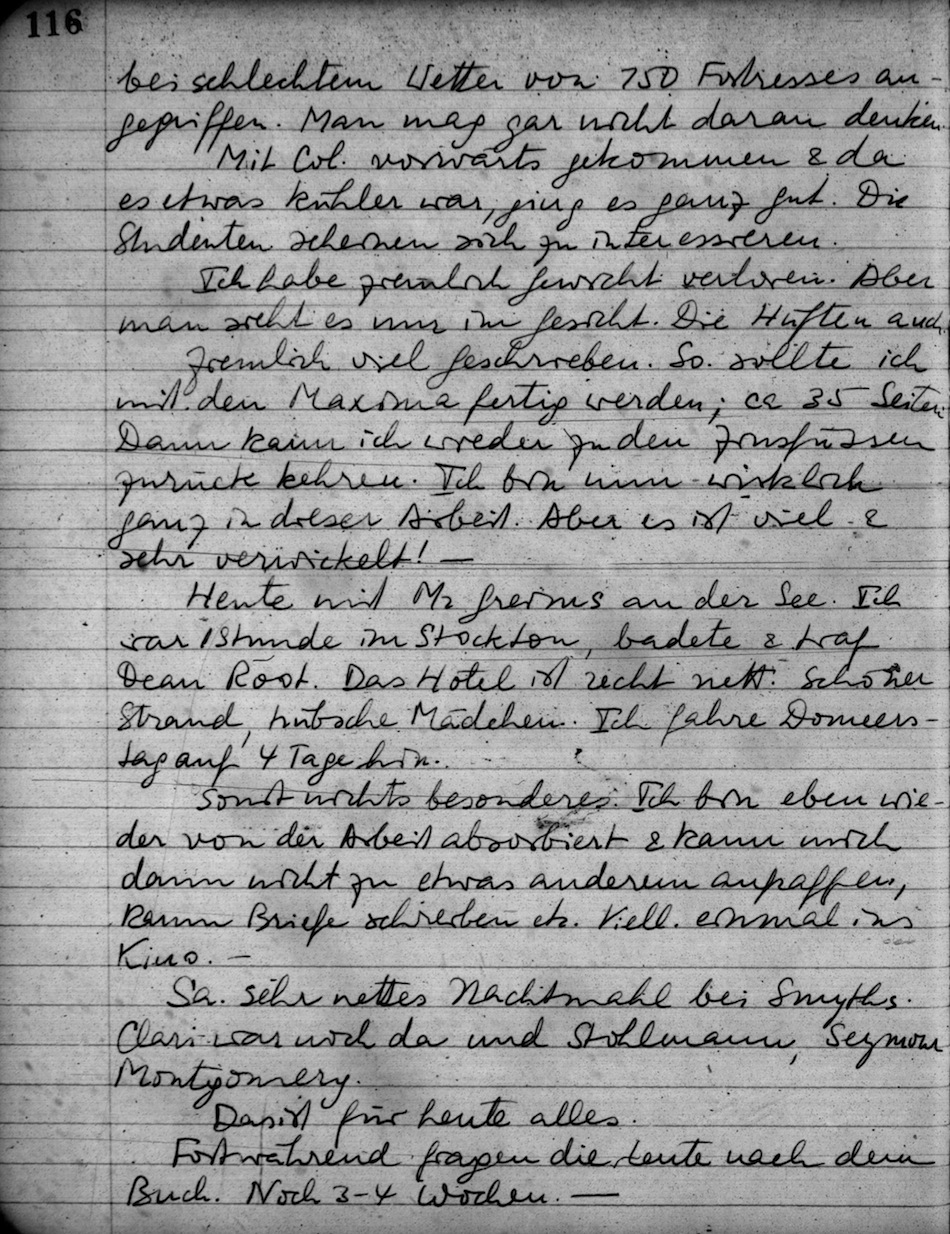 116
bei schlechtem Wetter von 750 Fortresses an-
gegriffen. Man mag gar nicht daran denken.
Mit Col. vorwärts gekommen & da
es etwas kühler war, ging es ganz gut. Die
Studenten scheinen sich zu interessieren.
Ich habe ziemlich Gewicht verloren. Aber
man sieht es nur im Gesicht. Die Hüften auch.
Ziemlich viel geschrieben. So sollte ich
mit den Maxima fertig werden; ca 35 Seiten.
Dann kann ich wieder zu den Zinsfüssen
zurück kehren. Ich bin nun wirklich
ganz in dieser Arbeit. Aber es ist viel &
sehr verwickelt! —
Heute mit Mr Greims an der See. Ich
war 1 Stunde im Stockton, badete & traf
Dean Root. Das Hotel ist recht nett. Schöner
Strand, hübsche Mädchen. Ich fahre Donners-
tag auf 4 Tage hin.
Sonst nichts besonderes. Ich bin eben wie-
der von der Arbeit absorbiert & kann mich
dann nicht zu etwas anderem aufraffen,
kaum Briefe schreiben etc. Viell. einmal ins
Kino. —
Sa. sehr nettes Nachtmahl bei Smyths.
Clari war noch da und Stohlmann, Seymour
Montgomery.
Das ist für heute alles.
Fortwährend fragen die Leute nach dem
Buch. Noch 3-4 Wochen. —